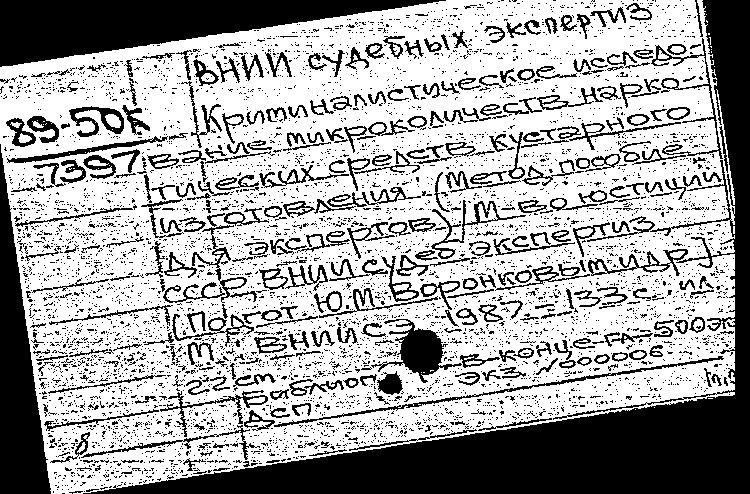 ВНИИ судебных экспертиз
89-50К
7397
Криминалистическое исследо-
вание микроколичеств нарко-
тических средств кустарного
изготовления: (Метод. пособие
для экспертов) / М-во юстиции
СССР, ВНИИ судеб. экспертиз;
[Подгот. Ю.М. Воронковым и др.]
М.: ВНИИСЭ, 1987. - 133 с.: ил.
22 см.
Библиогр. в конце гл. - 500 эк
ДСП. Экз. №000006.
8